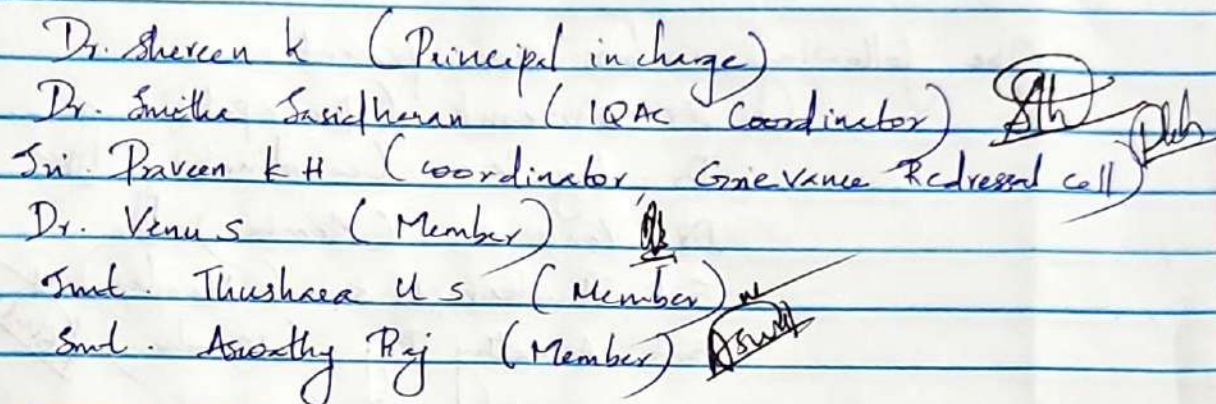 Dr. Shereen k (Principal in charge)
Dr. Smitha Sasidharan (IQAC Coordinator)
Sri. Praveen k H (coordinator, Grievance Redressal cell)
Dr. Venu S (Member)
Smt. Thushara U S (Member)
Smt. Aswathy Raj (Member)